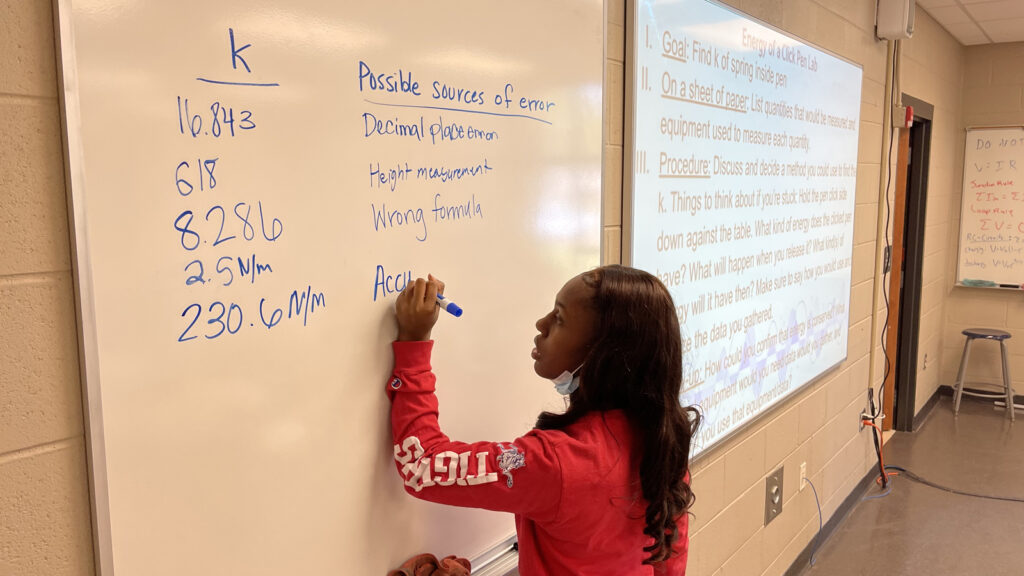 k
16.843
618
8.286
2.5 N/m
230.6 N/m
Possible sources of error
Decimal place error
Height measurement
Wrong formula
Accu
TIG
Energy of a Click Pen Lab
I. Goal: Find k of spring inside pen
II. On a sheet of paper: List quantities that would be measured and
equipment used to measure each quantity.
III. Procedure: Discuss and decide a method you could use to find the
k. Things to think about if you're stuck: Hold the pen click side
down against the table. What kind of energy does the clicked pen
have? What will happen when you release it? What kind(s) of
gy will it have then? Make sure to say how you would use
the data you gathered.
up: How could you confirm that energy is conserved?
equipment would you need
you use that equipment
DO NOT
V = IR
Junction Rule
Loop Rule
ΣV = 0